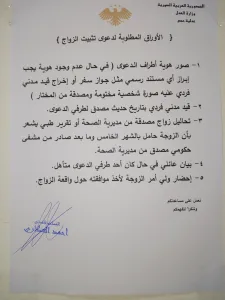 الجمهورية العربية السورية
وزارة العدل
{ الأوراق المطلوبة لدعوى تثبيت الزواج }
١ – صور هوية أطراف الدعوى ( في حال عدم وجود هوية يجب
إبراز أي مستند رسمي مثل جواز سفر أو إخراج قيد مدني
فردي عليه صورة شخصية مختومة ومصدقة من المختار )
٢ – قيد مدني فردي بتاريخ حديث مصدق لطرفي الدعوى.
٣ – تحاليل زواج مصدقة من مديرية الصحة أو تقرير طبي يشعر
بأن الزوجة حامل بالشهر الخامس وما بعد صادر من مشفى
حكومي مصدق من مديرية الصحة.
٤ – بيان عائلي في حال كان أحد طرفي الدعوى متأهل.
٥ – إحضار ولي أمر الزوجة لأخذ موافقته حول واقعة الزواج.
نحن على مساعدتكم
وشكراً لتفهمكم